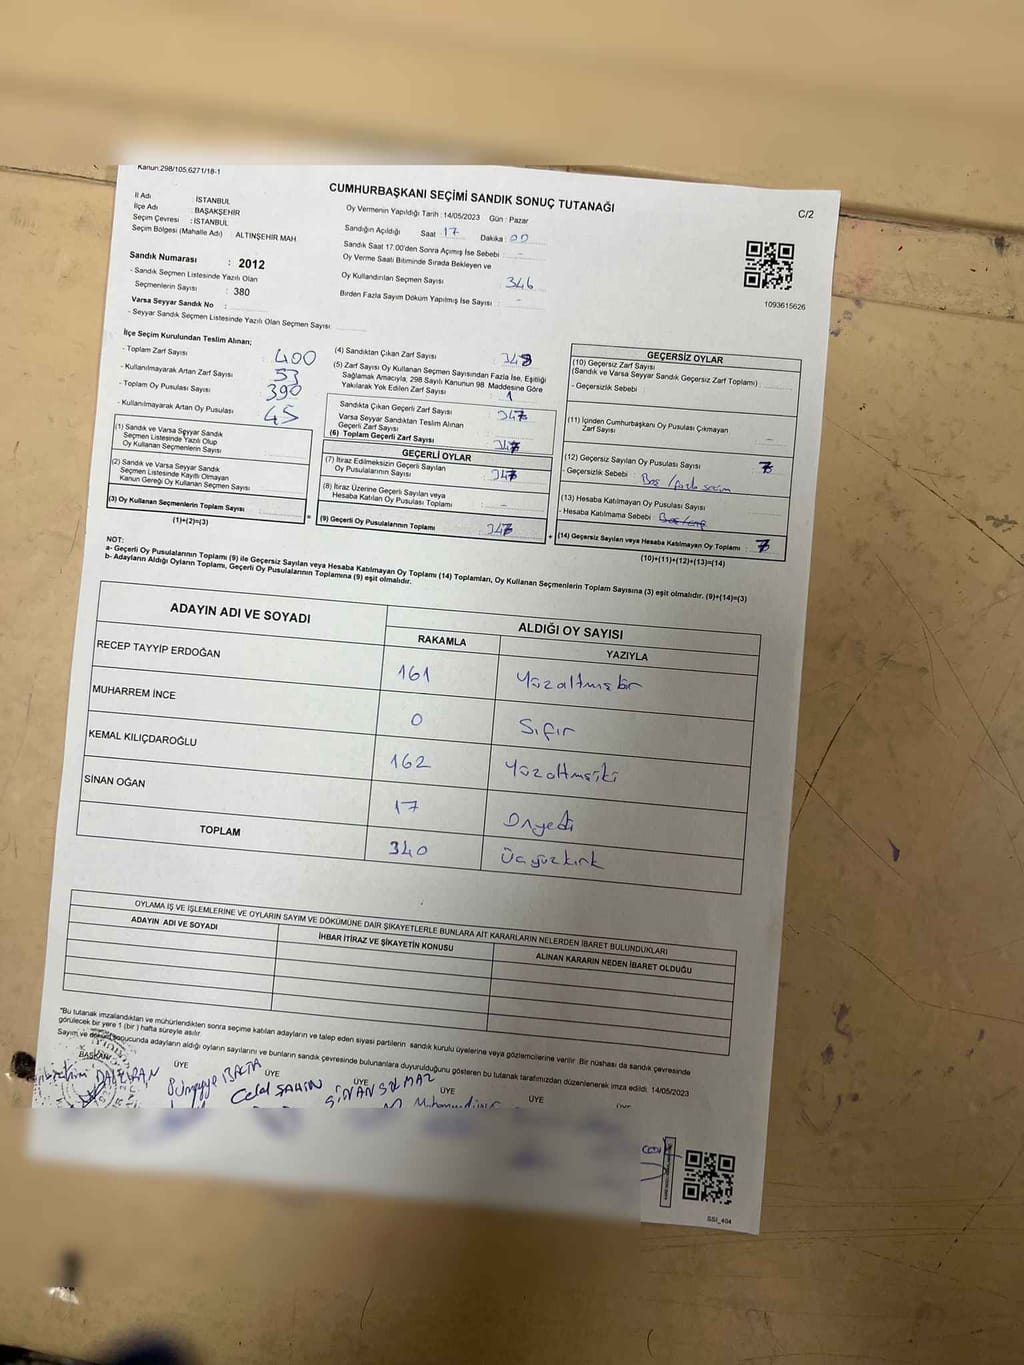 Kanun:298/105,6271/18-1
CUMHURBAŞKANI SEÇİMİ SANDIK SONUÇ TUTANAĞI
C/2
İl Adı : İSTANBUL
İlçe Adı : BAŞAKŞEHİR
Seçim Çevresi : İSTANBUL
Seçim Bölgesi (Mahalle Adı) : ALTINŞEHİR MAH
Oy Vermenin Yapıldığı Tarih : 14/05/2023 Gün : Pazar
Sandığın Açıldığı Saat 17 Dakika : 00
Sandık Saat 17:00'den Sonra Açımış İse Sebebi : -
Oy Verme Saati Bitiminde Sırada Bekleyen ve
Oy Kullandırılan Seçmen Sayısı 346
Birden Fazla Sayım Döküm Yapılmış İse Sayısı : -
1093615626
Sandık Numarası : 2012
- Sandık Seçmen Listesinde Yazılı Olan
Seçmenlerin Sayısı : 380
Varsa Seyyar Sandık No :
- Seyyar Sandık Seçmen Listesinde Yazılı Olan Seçmen Sayısı
İlçe Seçim Kurulundan Teslim Alınan;
- Toplam Zarf Sayısı : 400
- Kullanılmayarak Artan Zarf Sayısı : 53
- Toplam Oy Pusulası Sayısı : 390
- Kullanılmayarak Artan Oy Pusulası : 45
(1) Sandık ve Varsa Seyyar Sandık
Seçmen Listesinde Yazılı Olup
Oy Kullanan Seçmenlerin Sayısı
(2) Sandık ve Varsa Seyyar Sandık
Seçmen Listesinde Kayıtlı Olmayan
Kanun Gereği Oy Kullanan Seçmen Sayısı
(3) Oy Kullanan Seçmenlerin Toplam Sayısı
(1)+(2)=(3)
(4) Sandıktan Çıkan Zarf Sayısı : 348
(5) Zarf Sayısı Oy Kullanan Seçmen Sayısından Fazla İse, Eşitliği
Sağlamak Amacıyla, 298 Sayılı Kanunun 98. Maddesine Göre
Yakılarak Yok Edilen Zarf Sayısı : 1
Sandıkta Çıkan Geçerli Zarf Sayısı : 347
Varsa Seyyar Sandıktan Teslim Alınan
Geçerli Zarf Sayısı
(6) Toplam Geçerli Zarf Sayısı : 347
GEÇERLİ OYLAR
(7) İtiraz Edilmeksizin Geçerli Sayılan
Oy Pusulalarının Sayısı
(8) İtiraz Üzerine Geçerli Sayılan veya
Hesaba Katılan Oy Pusulası Toplamı : -
(9) Geçerli Oy Pusulalarının Toplamı
GEÇERSİZ OYLAR
(10) Geçersiz Zarf Sayısı
(Sandık ve Varsa Seyyar Sandık Geçersiz Zarf Toplamı)
- Geçersizlik Sebebi :
(11) İçinden Cumhurbaşkanı Oy Pusulası Çıkmayan
Zarf Sayısı : -
(12) Geçersiz Sayılan Oy Pusulası Sayısı : 7
- Geçersizlik Sebebi : Boş /fazla seçim
(13) Hesaba Katılmayan Oy Pusulası Sayısı
- Hesaba Katılmama Sebebi :
(14) Geçersiz Sayılan veya Hesaba Katılmayan Oy Toplamı : 7
(10)+(11)+(12)+(13)=(14)
NOT:
a- Geçerli Oy Pusulalarının Toplamı (9) ile Geçersiz Sayılan veya Hesaba Katılmayan Oy Toplamı (14) Toplamları, Oy Kullanan Seçmenlerin Toplam Sayısına (3) eşit olmalıdır. (9)+(14)=(3)
b- Adayların Aldığı Oyların Toplamı, Geçerli Oy Pusulalarının Toplamına (9) eşit olmalıdır.
ADAYIN ADI VE SOYADI ALDIĞI OY SAYISI
RAKAMLA YAZIYLA
RECEP TAYYİP ERDOĞAN 161 Yüzaltmışbir
MUHARREM İNCE 0 Sıfır
KEMAL KILIÇDAROĞLU 162 Yüzaltmışiki
SİNAN OĞAN 17 Onyedi
TOPLAM 340 Üçyüzkırk
OYLAMA İŞ VE İŞLEMLERİNE VE OYLARIN SAYIM VE DÖKÜMÜNE DAİR ŞİKAYETLERLE BUNLARA AİT KARARLARIN NELERDEN İBARET BULUNDUKLARI
ADAYIN ADI VE SOYADI İHBAR İTİRAZ VE ŞİKAYETİN KONUSU ALINAN KARARIN NEDEN İBARET OLDUĞU
"Bu tutanak imzalandıktan ve mühürlendikten sonra seçime katılan adayların ve talep eden siyasi partilerin sandık kurulu üyelerine veya gözlemcilerine verilir. Bir nüshası da sandık çevresinde
görülecek bir yere 1 (bir ) hafta süreyle asılır
Sayım ve döküm sonucunda adayların aldığı oyların sayılarını ve bunların sandık çevresinde bulunanlara duyurulduğunu gösteren bu tutanak tarafımızdan düzenlenerek imza edildi. 14/05/2023
BAŞKAN ÜYE ÜYE ÜYE ÜYE ÜYE ÜYE
Sümeyye BALTA Celal ŞAHİN SİNAN SOLMAZ
SSI_404